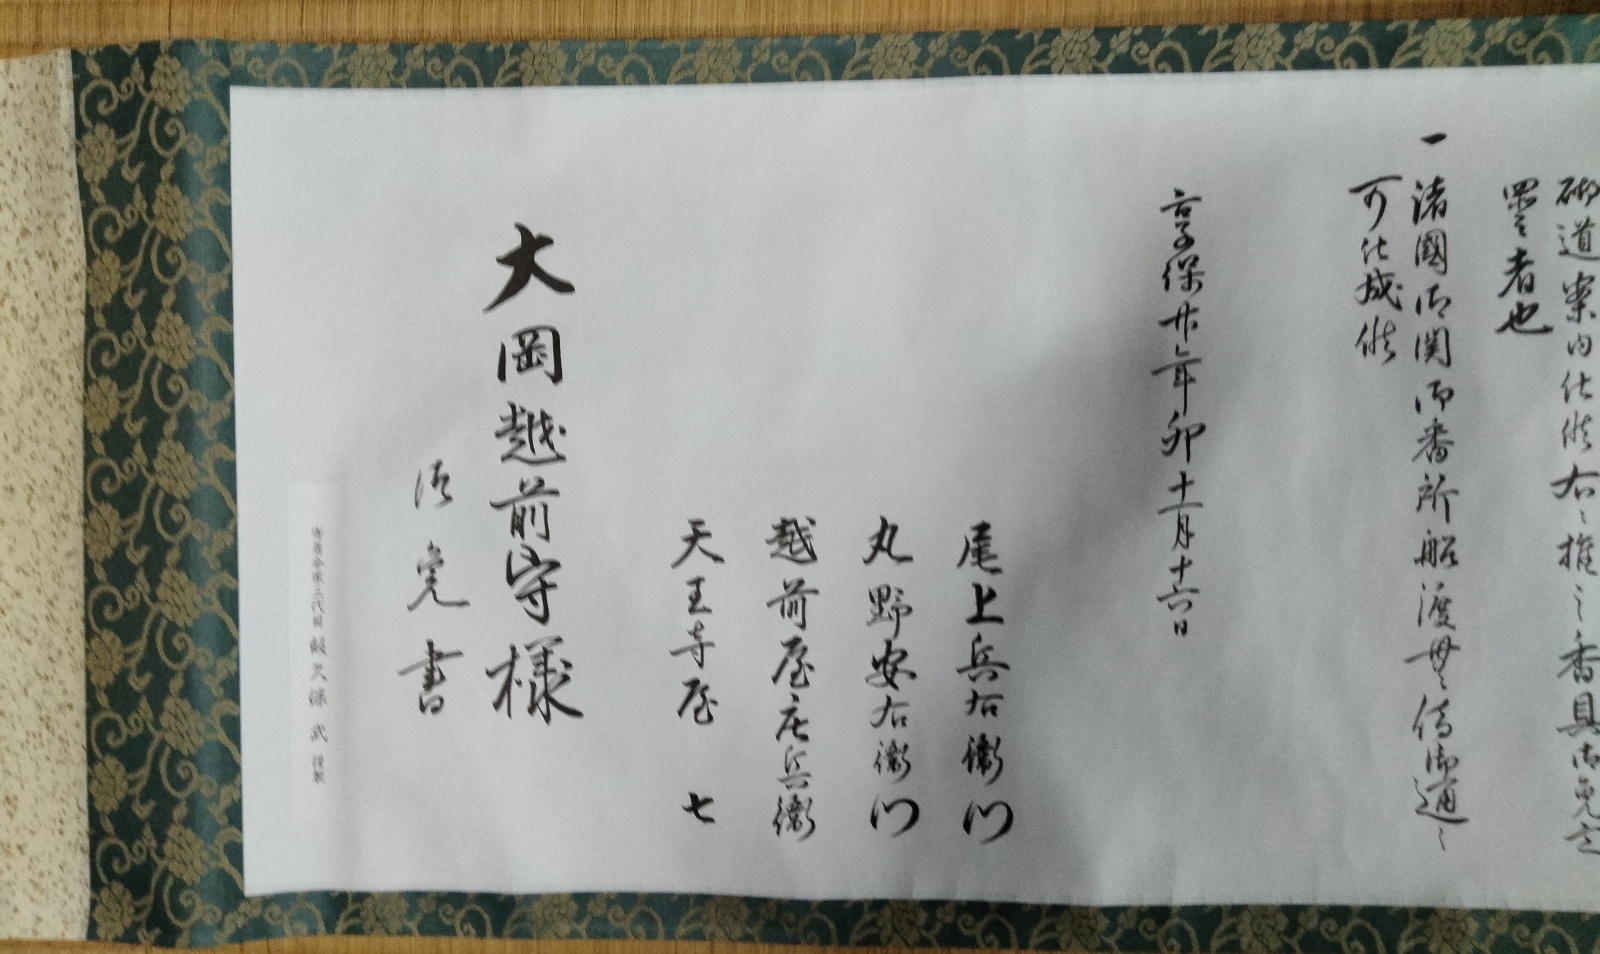 砌道案内仕候右之推之香具御免定
罡之者也
一諸國御関御番所船渡毋之停御通之
可化成候
享保廿年卯十一月十六日
尾上兵右衛門
丸野安右衛門
越前屋庄兵衛
天王寺屋 七
大岡越前守様
清完書
三代目 久保 武 謹製